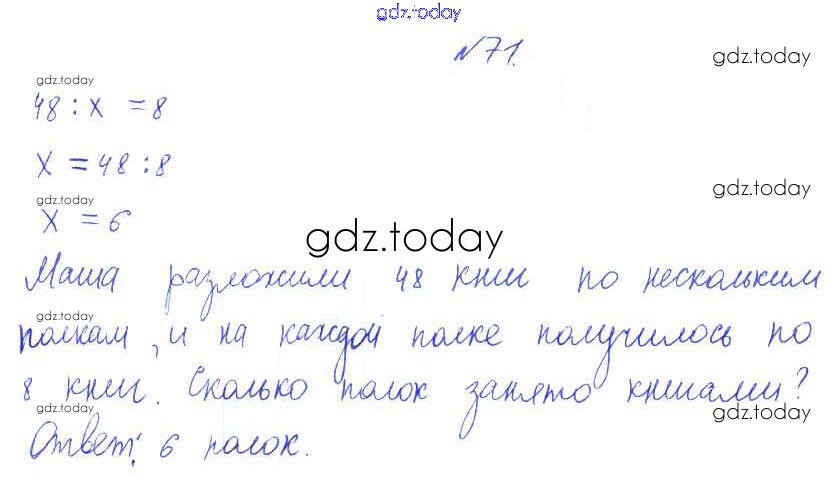 gdz.today
№71.
gdz.today
gdz.today
48 : x = 8
x = 48 : 8
gdz.today
gdz.today
x = 6
gdz.today
Маша разложили 48 книг по нескольким
gdz.today
полкам, и на каждой полке получилось по
8 книг. Сколько полок занято книгами?
gdz.today
gdz.today
Ответ: 6 полок.